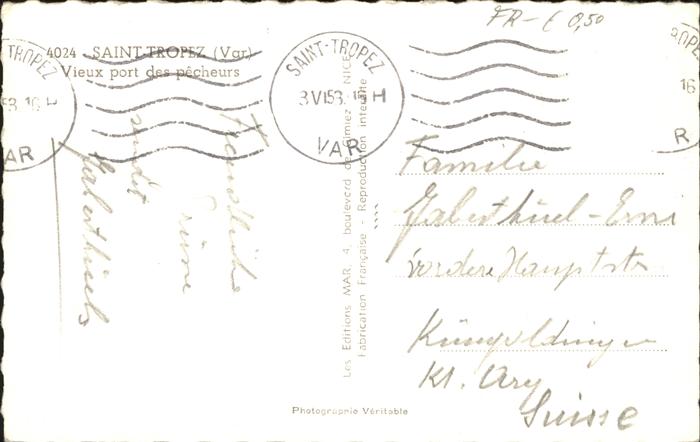 FR- € 0,50
4024 - SAINT-TROPEZ (Var)
Vieux port des pêcheurs
SAINT-TROPEZ
3 VI 53. 16 H
VAR
16
R
53. 16 H
AR
Freundliche
sendet
Les Editions MAR, 4, boulevard de Cimiez - NICE
Fabrication Française - Reproduction interdite
Familie
vordere Hauptstr.
Küngoldingen
Kt. Arg
Suisse
Photographie Véritable